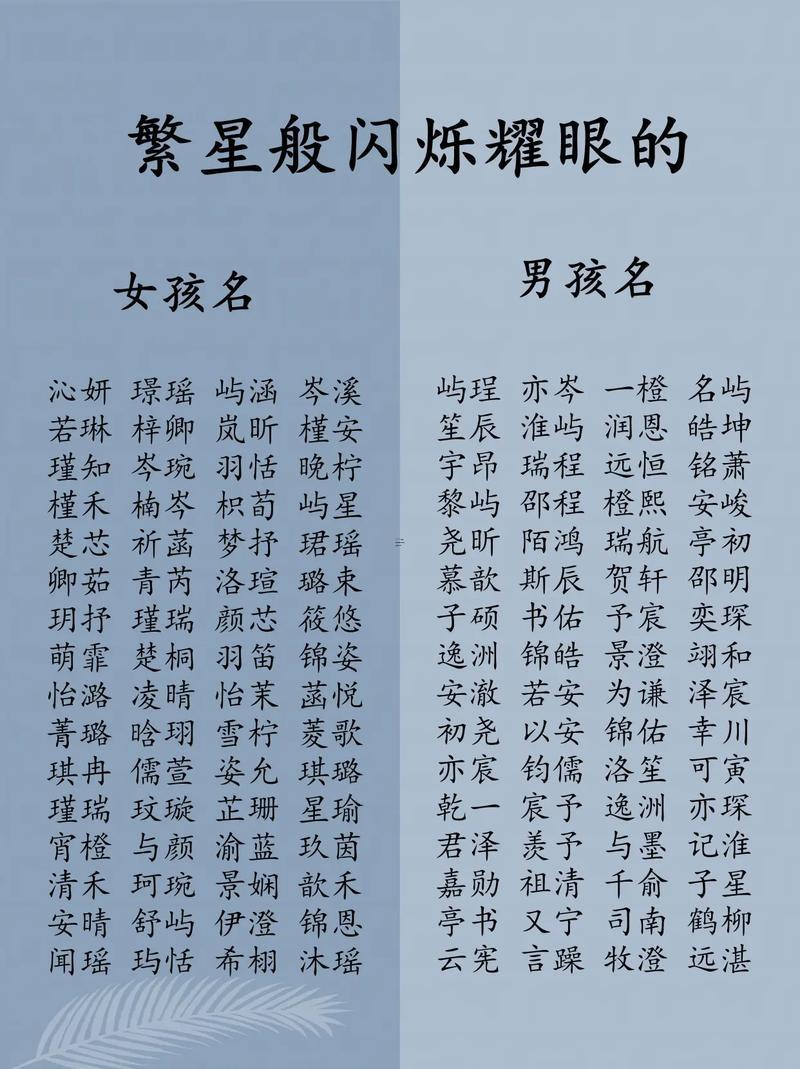 繁星般闪烁耀眼的
女孩名
沁妍 璟瑶 屿涵 岑溪
若琳 梓卿 岚昕 槿安
瑾知 岑琬 羽恬 晚柠
槿禾 楠岑 枳荀 屿星
楚芯 祈菡 梦抒 珺瑶
卿茹 青芮 洛瑄 璐束
玥抒 瑾瑞 颜芯 筱悠
萌霏 楚桐 羽笛 锦姿
怡潞 凌晴 怡茉 菡悦
菁璐 晗珝 雪柠 菱歌
琪冉 儒萱 姿允 琪璐
瑾瑞 玟璇 芷珊 星瑜
宵橙 与颜 渝蓝 玖茵
清禾 珂琬 景娴 歆禾
安晴 舒屿 伊澄 锦恩
闻瑶 玙恬 希栩 沐瑶
男孩名
屿珵 亦岑 一橙 名屿
笙辰 淮屿 润恩 皓坤
宇昂 瑞程 远恒 铭萧
黎屿 邵程 橙熙 安峻
尧昕 陌鸿 瑞航 亭初
慕歆 斯辰 贺轩 邵明
子硕 书佑 予宸 奕琛
逸洲 锦皓 景澄 翊和
安澈 若安 为谦 泽宸
初尧 以安 锦佑 幸川
亦宸 钧儒 洛笙 可寅
乾一 宸予 逸洲 亦琛
君泽 羡予 与墨 记淮
嘉勋 祖清 千俞 子星
亭书 又宁 司南 鹤柳
云宪 言躁 牧澄 远湛